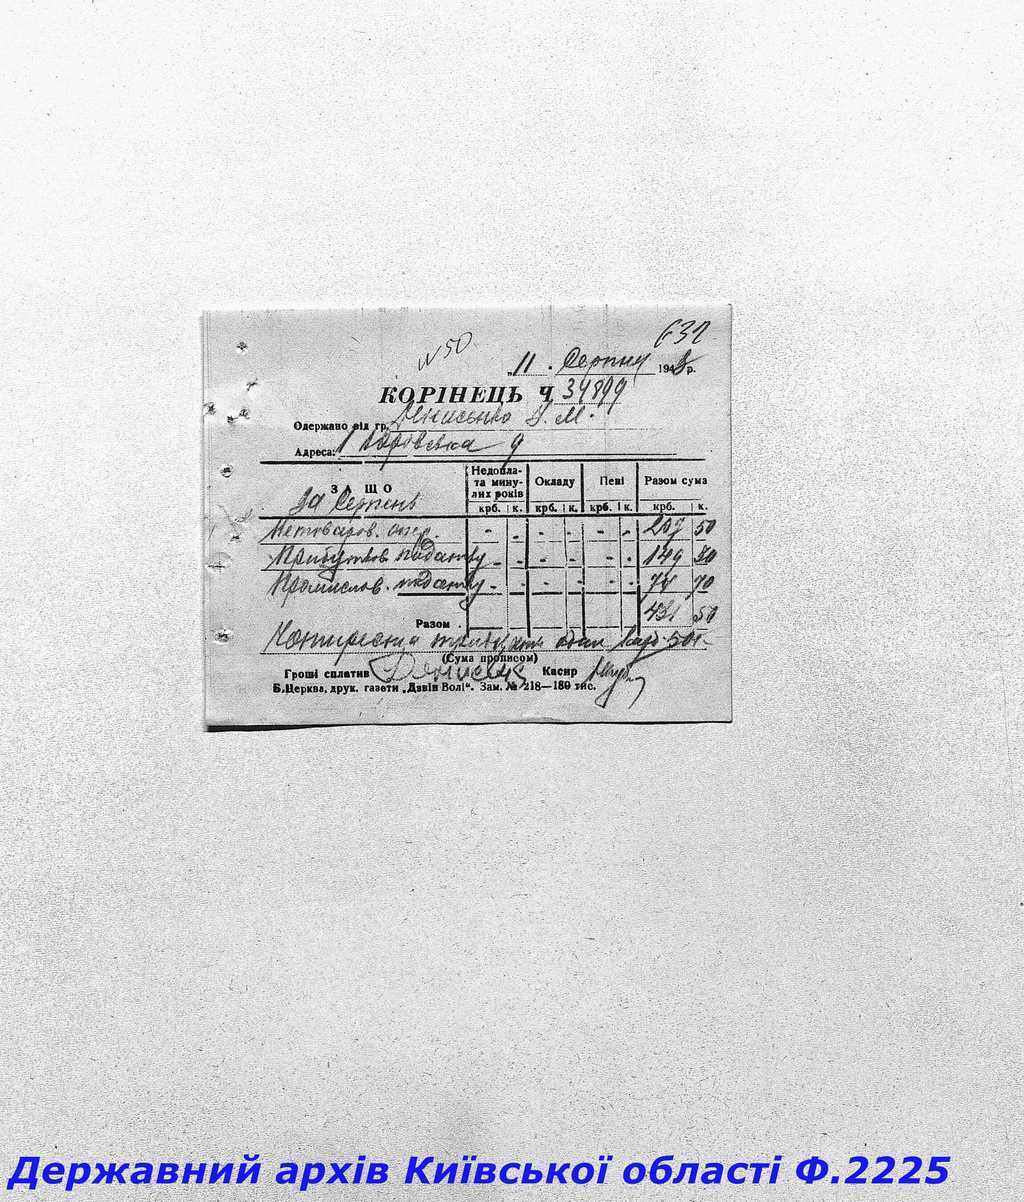 N 50
632
„11 . Серпня 1943 р.
КОРІНЕЦЬ Ч. 34899
Одержано від гр. Денисенко М.
Адреса:
ЗА ЩО Недопла- та мину- лих років Окладу Пені Разом сума
За Серпень крб. к. крб. к. крб. к. крб. к.
Нетоваров. опер. - - - - - - 207 50
Прибутков. податку - - - - - - 149 30
Промислов. податку - - - - - - 74 70
Разом 431 50
Чотириста тридцять один карб 50 к.
(Сума прописом)
Гроші сплатив Касир
Б.Церква, друк. газети „Дзвін Волі“. Зам. № 218—180 тис.
Державний архів Київської області Ф.2225